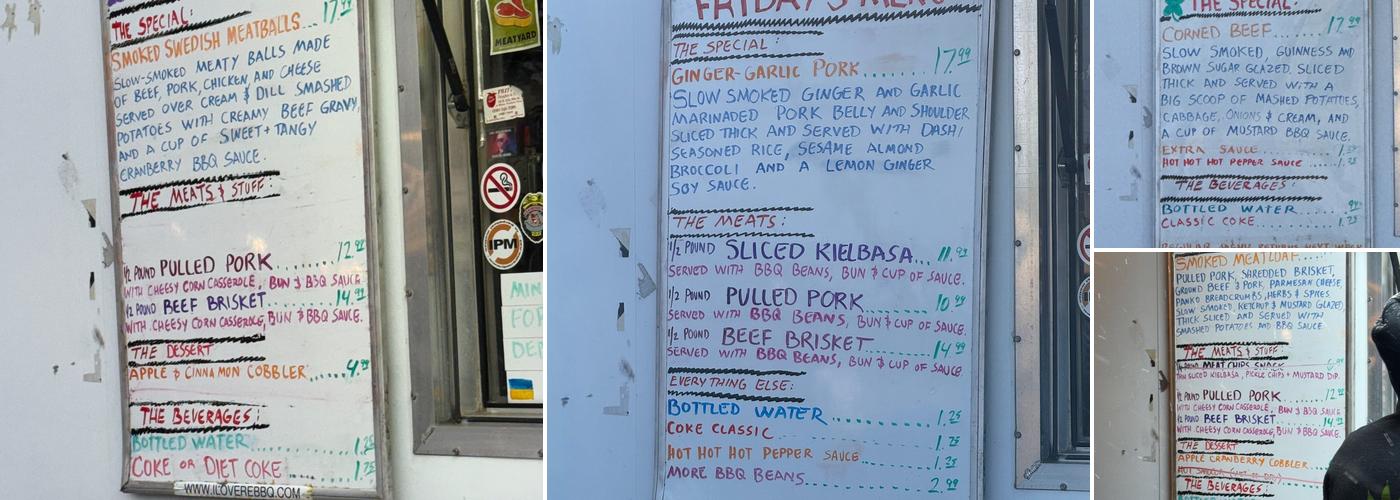 THE SPECIAL:
SMOKED SWEDISH MEATBALLS... 17.99
SLOW-SMOKED MEATY BALLS MADE
OF BEEF, PORK, CHICKEN, AND CHEESE
SERVED OVER CREAM & DILL SMASHED
POTATOES WITH CREAMY BEEF GRAVY,
AND A CUP OF SWEET + TANGY
CRANBERRY BBQ SAUCE.
THE MEATS & STUFF:
1/2 POUND PULLED PORK........ 12.99
WITH CHEESY CORN CASSEROLE, BUN & BBQ SAUCE
1/2 POUND BEEF BRISKET........ 14.99
WITH CHEESY CORN CASSEROLE, BUN & BBQ SAUCE.
THE DESSERT
APPLE & CINNAMON COBBLER..... 4.99
THE BEVERAGES:
BOTTLED WATER........ 1.25
COKE OR DIET COKE..... 1.75
WWW.ILOVEREBBQ.COM
MEATYARD
IPM
MIN
FOR
DEP
FRIDAY'S MENU
THE SPECIAL:
GINGER-GARLIC PORK....... 17.99
SLOW SMOKED GINGER AND GARLIC
MARINADED PORK BELLY AND SHOULDER
SLICED THICK AND SERVED WITH DASHI
SEASONED RICE, SESAME ALMOND
BROCCOLI AND A LEMON GINGER
SOY SAUCE.
THE MEATS:
1/2 POUND SLICED KIELBASA... 11.99
SERVED WITH BBQ BEANS, BUN & CUP OF SAUCE.
1/2 POUND PULLED PORK....... 10.99
SERVED WITH BBQ BEANS, BUN & CUP OF SAUCE.
1/2 POUND BEEF BRISKET....... 14.99
SERVED WITH BBQ BEANS, BUN & CUP OF SAUCE.
EVERYTHING ELSE:
BOTTLED WATER........ 1.25
COKE CLASSIC........ 1.75
HOT HOT HOT PEPPER SAUCE.... 1.25
MORE BBQ BEANS........ 2.99
THE SPECIAL:
CORNED BEEF........ 17.99
SLOW SMOKED, GUINNESS AND
BROWN SUGAR GLAZED, SLICED
THICK AND SERVED WITH A
BIG SCOOP OF MASHED POTATOES,
CABBAGE, ONIONS & CREAM, AND
A CUP OF MUSTARD BBQ SAUCE.
EXTRA SAUCE
HOT HOT HOT PEPPER SAUCE.... 1.25
THE BEVERAGES:
BOTTLED WATER
CLASSIC COKE........ 1.25
REGULAR MENU RETURNS NEXT WEEK
SMOKED MEATLOAF....
PULLED PORK, SHREDDED BRISKET,
GROUND BEEF & PORK, PARMESAN CHEESE,
PANKO BREADCRUMBS, HERBS & SPICES.
SLOW SMOKED KETCHUP & MUSTARD GLAZED
THICK SLICED AND SERVED WITH
SMASHED POTATOES AND BBQ SAUCE.
THE MEATS & STUFF
MEAT CHIPS SNACK
THIN SLICED KIELBASA, PICKLE CHIPS + MUSTARD DIP.
1/2 POUND PULLED PORK....... 12.99
WITH CHEESY CORN CASSEROLE, BUN & BBQ SAUCE
1/2 POUND BEEF BRISKET....... 14.99
WITH CHEESY CORN CASSEROLE, BUN & BBQ SAUCE.
THE DESSERT
APPLE CRANBERRY COBBLER....
THE BEVERAGES: